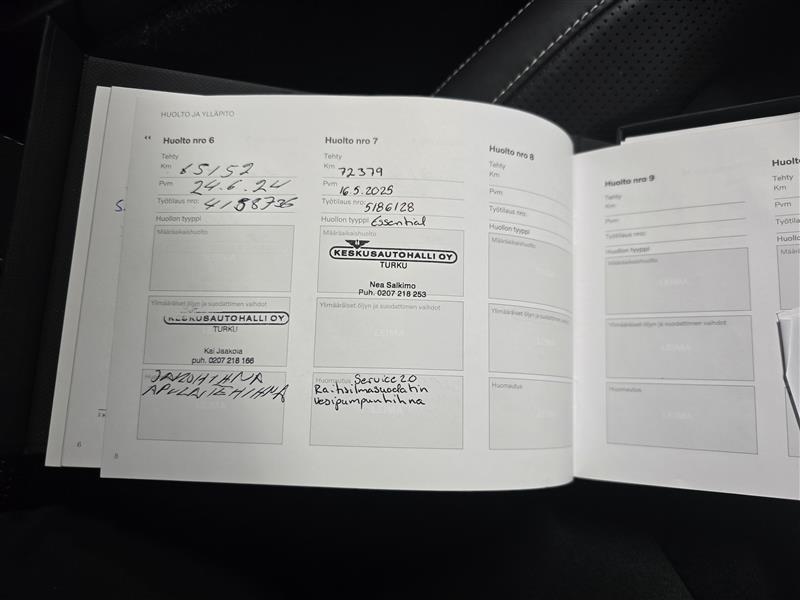 HUOLTO JA YLLÄPITO
Huolto nro 6
Tehty
Km 65152
Pvm 24.6.24
Työtilaus nro: 4188736
Huollon tyyppi
Määräaikaishuolto
Ylimääräiset öljyn ja suodattimen vaihdot
KESKUSAUTOHALLI OY
TURKU
Kai Jaakola
puh. 0207 218 166
JAKOHIHNA
APULAITEHIHNA
6
8
Huolto nro 7
Tehty
Km 72379
Pvm 16.5.2025
Työtilaus nro: 5186128
Huollon tyyppi Essential
Määräaikaishuolto
KESKUSAUTOHALLI OY
TURKU
Nea Salkimo
Puh. 0207 218 253
Ylimääräiset öljyn ja suodattimen vaihdot
Huomautus Service 2.0
Raitisilmasuodatin
Vesipumpunhihna
Huolto nro 8
Tehty
Km
Pvm
Työtilaus nro:
Huollon tyyppi
Määräaikaishuolto
Ylimääräiset öljyn ja suodattimen vaihdot
Huomautus
Huolto nro 9
Tehty
Km
Pvm
Työtilaus nro:
Huollon tyyppi
Määräaikaishuolto
Ylimääräiset öljyn ja suodattimen vaihdot
Huomautus
Huolto
Tehty
Km
Pvm
Työtilaus